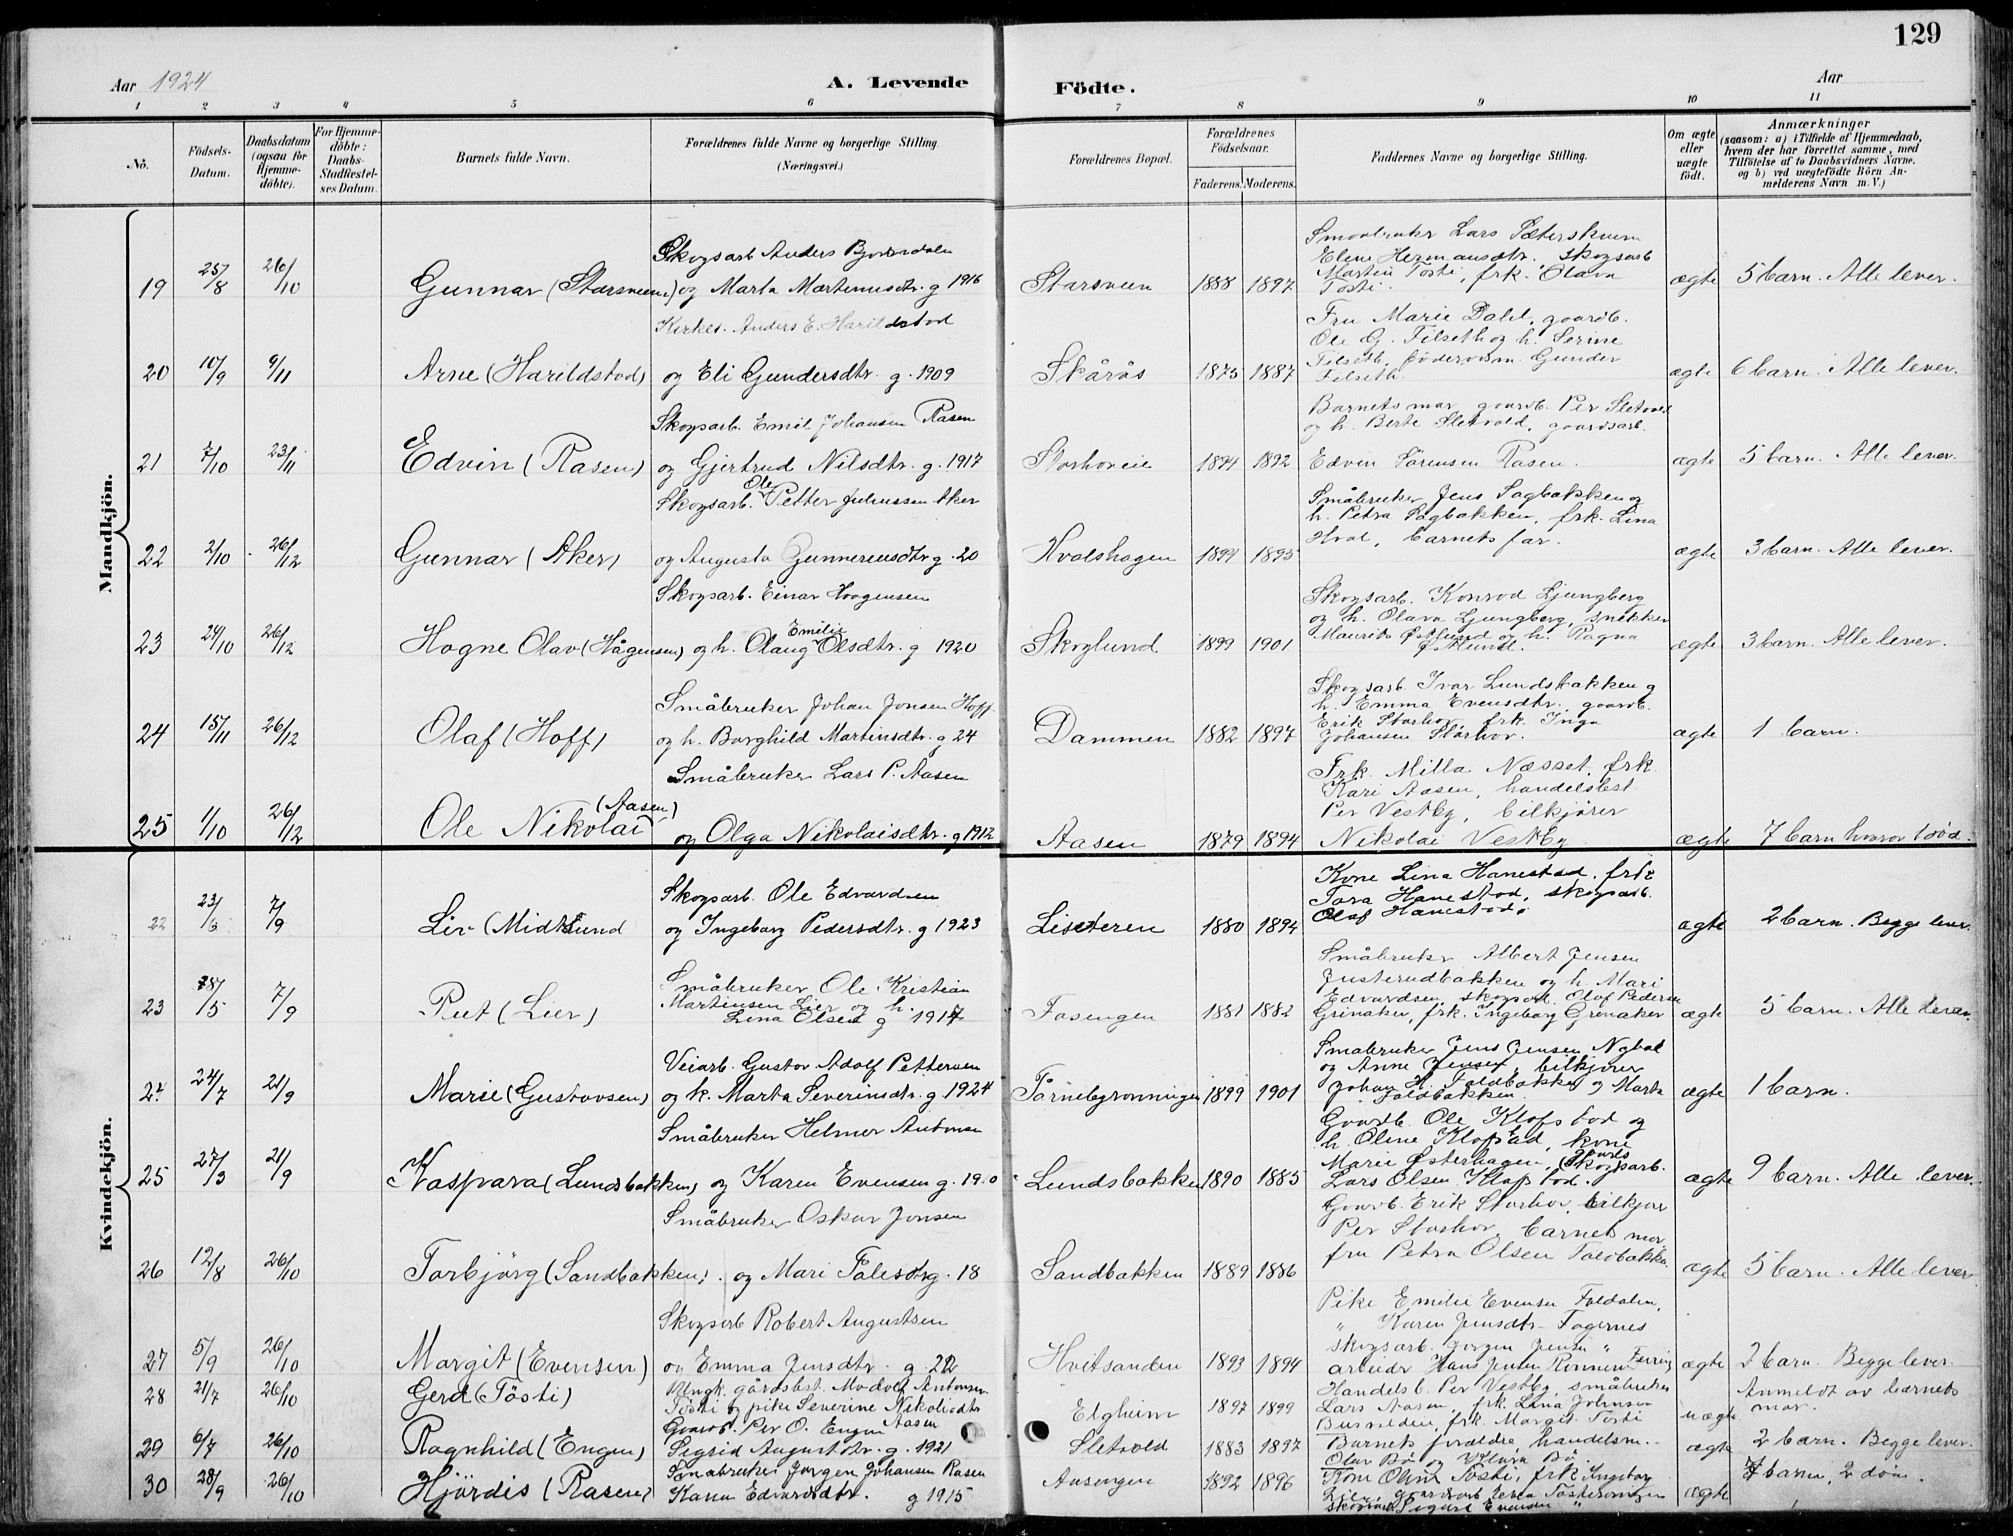 129
Aar 1924
A. Levende
Födte.
Aar
1 2 3 4 5 6 7 8 9 10 11
No.
Födsels-Datum.
Daabsdatum (ogsaa for Hjemmedöbte).
For Hjemmedöbte: Daabs-Stadfæstelses Datum.
Barnets fulde Navn.
Forældrenes fulde Navne og borgerlige Stilling. (Næringsvei.)
Forældrenes Bopæl.
Forældrenes Födselsaar.
Faderens. Moderens.
Faddernes Navne og borgerlige Stilling.
Om ægte eller uægte födt.
Anmærkninger
(saasom: a) i Tilfælde af Hjemmedaab, hvem der har forrettet samme, med Tilföielse af to Daabsvidners Navne, og b) ved uægtefödte Börn Anmelderens Navn m. V.)
Mandkjön.
19 25/8 26/10 Gunnar (Storsveen) Skogsarb Anders Bjornsdalen og Marta Martenusdtr. g 1916 Storsveen 1888 1897 Lars Sæterskvern Elene Hermansdtr. skogsarb Martin Tosti, frk. Olava Tosti. ægte 5 barn. Alle lever.
20 10/9 9/11 Arne (Harildstad) Kirkes. Anders E. Harildstad og Eli Gundersdtr. g. 1909 Skårås 1875 1887 Fru Marie Dahl, gaardb. Ole G. Filseth og h. Serine Filseth, Gunder Filseth. ægte 6 barn. Alle lever.
21 7/10 23/11 Edvin (Rasen) Skogsarb. Emil Johansen Rasen og Gjertrud Nilsdtr. g. 1917 Storhoveie 1894 1892 Barnets mor, gaardb. Per Sletvold og h. Berte Sletvold, gaardsarb. Edvin Sörensen Rasen. ægte 5 barn. Alle lever.
22 2/10 26/12 Gunnar (Aker) Skogsarb. Ole Petter Juliussen Aker og Augusta Gunnerensdtr g. 20 Hvalshagen 1894 1895 Småbruker Jens Sagbakken og h. Petra Sagbakken, frk. Lina Hval, barnets far. ægte 3 barn. Alle lever.
23 24/10 26/12 Hogne Olav (Hågensen) Skogsarb. Einar Hoogensen og h. Olaug Emilie Olsdtr. g 1920 Skoglund 1899 1901 Skogsarb. Konrad Ljungberg og h. Olava Ljungberg, snekker Maurits Østlund og h. Ragna Østlund. ægte 3 barn. Alle lever.
24 15/11 26/12 Olaf (Hoff) Småbruker Johan Jonsen Hoff og h. Borghild Martinsdtr. g 24 Dammen 1882 1897 Skogsarb. Ivar Lundsbakken g h. Emma Evensdtr, gaardb. Erik Storhov, frk. Inga Johansen Storhov. ægte 1 barn.
25 1/10 26/12 Ole Nikolai (Aasen) Småbruker Lars P. Aasen og Olga Nikolaisdtr. g 1912 Aasen 1879 1894 Frk. Milla Næsset, frk. Kari Aasen, handelsbest. Per Vestby, bilkjører Nikolai Vestby ægte 7 barn hvorav 1 død.
Kvindekjön.
22 23/3 7/9 Liv (Midtlund Skogsarb. Ole Edvardsen og Ingeborg Pedersdtr. g 1923 Liseteren 1880 1894 Kone Lina Hanestad, frk Tora Hanestad, skogsarb. Olaf Hanestad. ægte 2 barn. Begge lever.
23 28/5 7/9 Rut (Lier) Småbruker Ole Kristian Martinsen Lier og h. Lina Olsen g 1917 Fosengen 1881 1882 Småbruker Albert Jensen Justerudbakken og h. Mari Edvardsen, skogsarb. Olaf Pedersen Grinaker, frk. Ingeborg Grinaker ægte 5 barn. Alle lever.
24 24/7 21/9 Marie (Gustavsen) Veiarb. Gustav Adolf Pettersen og k. Marta Severinsdtr. g 1924 1899 1901 Småbruker Jens Jensen og Anne Jensen, bilkjører Johan H. Foldbakken og Marta Foldbakken. ægte 1 barn.
25 27/3 21/9 Kaspara (Lundsbakken) Småbruker Helmer Antonsen og Karen Evensen g. 19.0 Lundsbakken 1890 1885 Gaardb. Ole Klofstad og h. Oline Klofstad, kone Marie Østerhagen, skogsarb. Lars Olsen Klofstad. ægte 9 barn. Alle lever.
26 12/8 26/10 Torbjörg (Sandbakken) Småbruker Oskar Jonsen og Mari g. 18 Sandbakken 1889 1886 Gaardb. Erik Storhov, bilkjører Per Storhov, barnets mor, fru Petra Olsen Foldbakken. ægte 5 barn. Alle lever.
27 5/9 26/10 Margit (Evensen) Skogsarb Robert Augustsen og Emma Jensdtr. g. 22 Hvitsanden 1893 1894 Pike Emilie Evensen Foldalen, " Karen Jensdtr. Fagernes skogsarb. Jorgen Jensen " arbeider Hans Jensen ægte 2 barn. Begge lever.
28 21/7 26/10 Gerd (Tösti) Ungk. gårdsbest. Modolf Antonsen Tösti og pike Severine Nikolaisdtr Aasen Elgheim 1897 1899 Handelsb. Per Vestby, småbruker Lars Aasen, frk. Lina Johnsen, frk. Margit Tosti uægte Anmeldt av barnets mor.
29 6/7 26/10 Ragnhild (Engen) Gaardb. Per O. Engen Sigrid Augustdtr. g. 1921 Sletvold 1883 1897 Barnets forældre, handelsm. Olav Bö og Klara Bö. ægte 2 barn. Begge lever.
30 28/9 26/10 Hjördis (Rasen) Småbruker Jorgen Johansen Rasen Karen Edvardsdtr. g 1915 Aasengen 1892 1896 Kone Oline Tosti, frk Ingeborg Lien, gaardsarb skogsarb. Sigurd Evensen " ægte 7 barn, 2 döde.